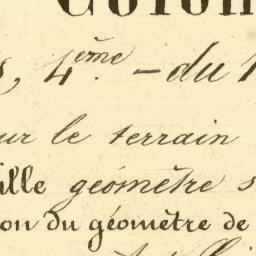 4ème. – du
ur le terrain
ille géomètre s
on du géomètre de